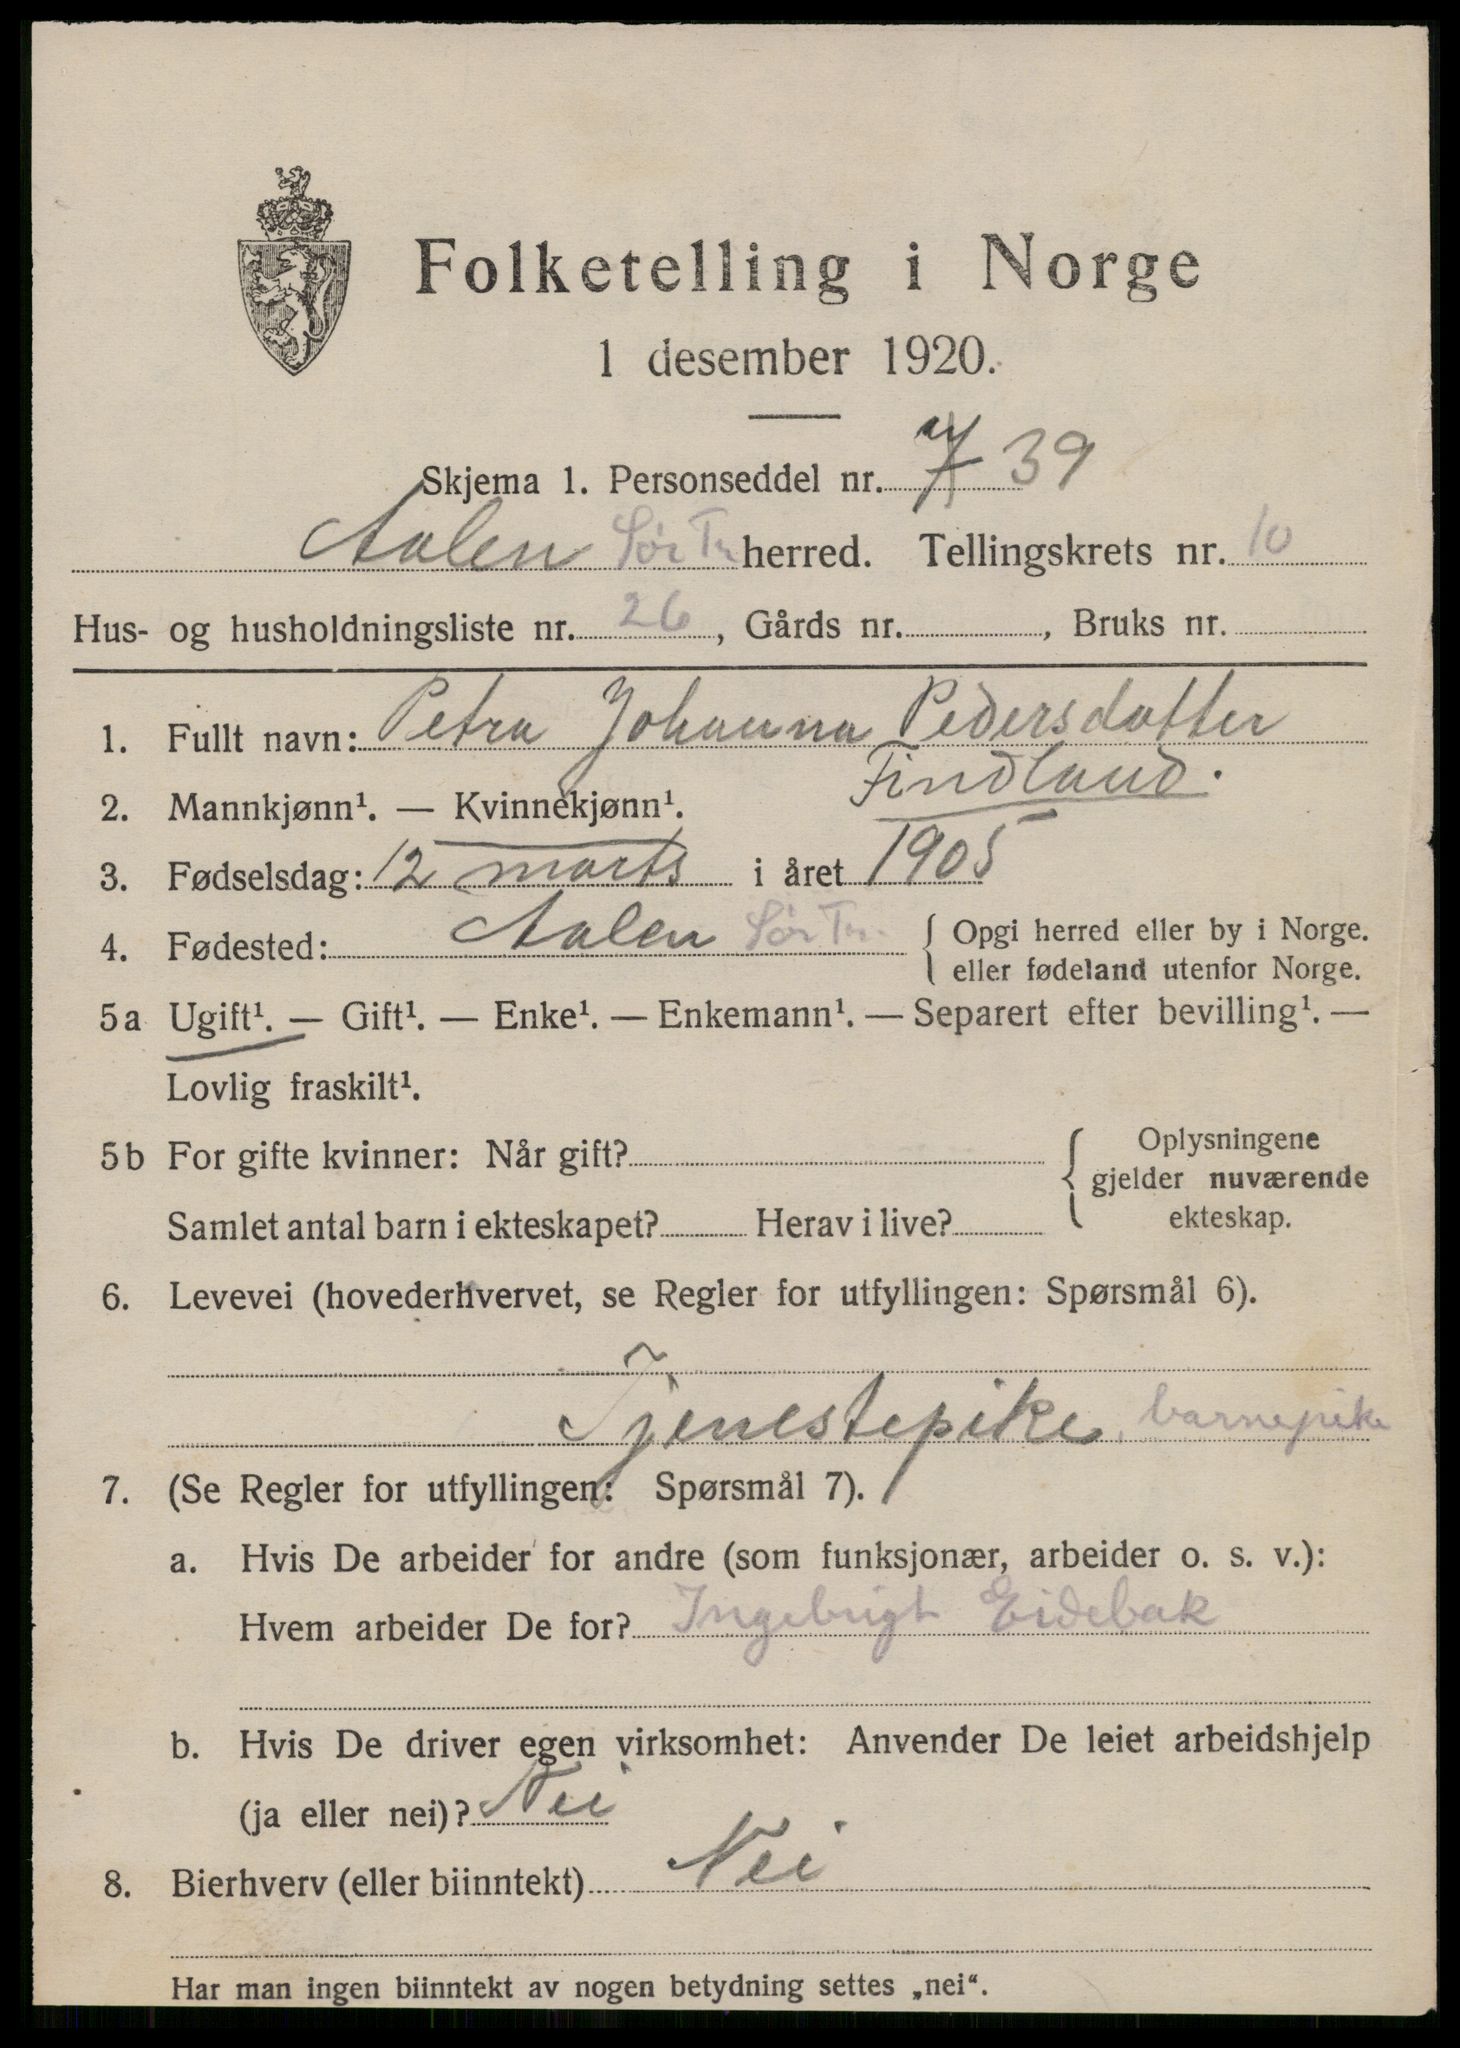 Folketelling i Norge
1 desember 1920.
Skjema 1. Personseddel nr. 7 39
Aalen Sør Tr herred. Tellingskrets nr. 10
Hus- og husholdningsliste nr. 26, Gårds nr. , Bruks nr.
1. Fullt navn: Petra Johanna Pedersdatter
Findland.
2. Mannkjønn¹. — Kvinnekjønn¹.
3. Fødselsdag: 12 marts i året 1905
4. Fødested: Aalen Sør Tr. { Opgi herred eller by i Norge.
eller fødeland utenfor Norge.
5a Ugift¹. — Gift¹. — Enke¹. — Enkemann¹. — Separert efter bevilling¹. —
Lovlig fraskilt¹.
5b For gifte kvinner: Når gift? { Oplysningene
gjelder nuværende
ekteskap.
Samlet antal barn i ekteskapet? Herav i live?
6. Levevei (hovederhvervet, se Regler for utfyllingen: Spørsmål 6).
Tjenestepike, barnepike
7. (Se Regler for utfyllingen: Spørsmål 7).
a. Hvis De arbeider for andre (som funksjonær, arbeider o. s. v.):
Hvem arbeider De for? Ingebrigt Eidebak
b. Hvis De driver egen virksomhet: Anvender De leiet arbeidshjelp
(ja eller nei)? Nei
8. Bierhverv (eller biinntekt) Nei
Har man ingen biinntekt av nogen betydning settes „nei“.